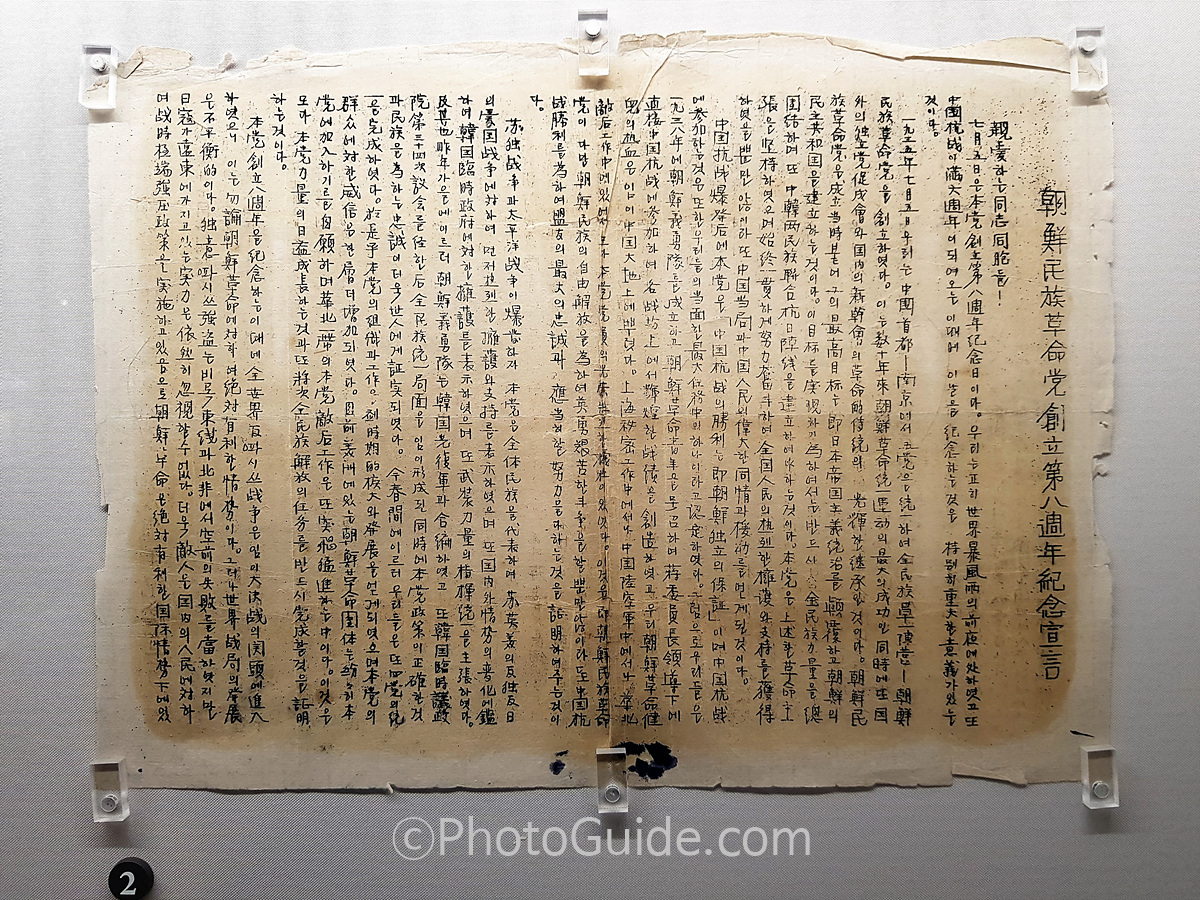 朝鮮民族革命党創立第八週年紀念宣言
親爱하는同志同胞들!
七月五日은本党創立第八週年紀念日이다。우리는正히世界暴風雨의前夜에處하엿고또
中國抗战이滿六週年이되여오는이때에 이날을 紀念하는것은 特别히重大한意義가있는
것이다。
一九三五年七月五日우리는中國首都—南京에서五党을统一하여全民族單一한党—朝鮮
民族革命党을創立하엿다。이는数十年來朝鮮革命统一运动의最大의成功인同時에또国
外의独立党促成會와国内의新幹会의革命的传统의 光輝한継承인것이다。朝鮮民
族革命党은成立当時붙어그의最高目标는即日本帝国主義统治를顛覆하고朝鮮의
民主共和国을建立하는것이다。이目标를实现하기為하여서는반드시全民族力量을總
团结하며또中韓两民族聯合抗日陣线을建立하여야하는것이다。本党은上述한革命主
張을堅持하엿으며始终一貫하게努力奮斗하여全国人民의热烈한擁護와支持를獲得
하엿을뿐만않이라또中国当局과中国人民의偉大한同情과援助를얻게된것이다。
中国抗战爆發后에本党은「中国抗战의勝利는即朝鮮独立의保証」이며中国抗战
에参加하는것은또한우리들의当面한最大任務中의하나이라고認定하엿다。그럼으로우리들은
一九三八年에朝鮮義勇隊를成立하고朝鮮革命青年을号召하며蒋委員長領導下에
直接中国抗战에参加하여各战场上에서輝煌한战绩을創造하엿고우리朝鮮革命健
男의热血은임이中国大地上에뿌렷다。上海秘密工作中에서나中国陸空軍中에서나華北
敌后工作中에있어서
党이다만朝鮮民族의自由解放을為하여英勇艰苦한斗争을할뿐만않이라또中国抗
战勝利를為하여盟友의最大의忠誠과 應当히할努力을다하는것을証明하여주는것이
다。
苏独战争과太平洋战争이爆發하자本党은全体民族을代表하여苏英美의反独反日
의衛国战争에対하여먼저热烈한擁護와支持를表示하엿으며또国内外情势의变化에鑑
하여韓国臨時政府에対한擁護를表示하엿으며또武装力量의指揮统一을主張하엿다。
及其也昨年가을에이르러朝鮮義勇隊는韓国光復軍과合編하엿고또韓国臨時議政
院第三十四次議会를経한后全民族统一局面을임이形成된同時에本党政策의正確한것
과民族을為하는忠誠이더욱世人에게証实되엿다。今春間에이르러우리들은또四党의统
一을完成하엿다。於是乎本党의组织과工作은創時期的拡大와發展을얻게되엿으며本党의
群众에対한威信은한層더增加되엿다。目前美洲에있는朝鮮革命团体는紛紛히本
党에加入하기를自願하며華北一帶의本党敵后工作은또突飛猛進하는中이다。이것은
모다本党力量의日益成長하는것과또将次全民族解放의任务를반드시完成할것을証明
하는것이다。
本党創立八週年을紀念하는이때에全世界反파시쓰战争은임의大决战의関頭에進入
하엿으니이는勿論朝鮮革命에対하여絶対有利한情势이다。그러나世界战局의發展
은不平衡的이다。独意파시쓰強盗는비록東线과北非에서空前의失敗를當하엿지만
日寇가遠東에가지고있는实力은依然히忽视할수없다。더욱敵人은国内의人民에対하
여战時極端強压政策을实施하고있음으로朝鮮革命은絶対有利한国际情势下에있
©PhotoGuide.com
2